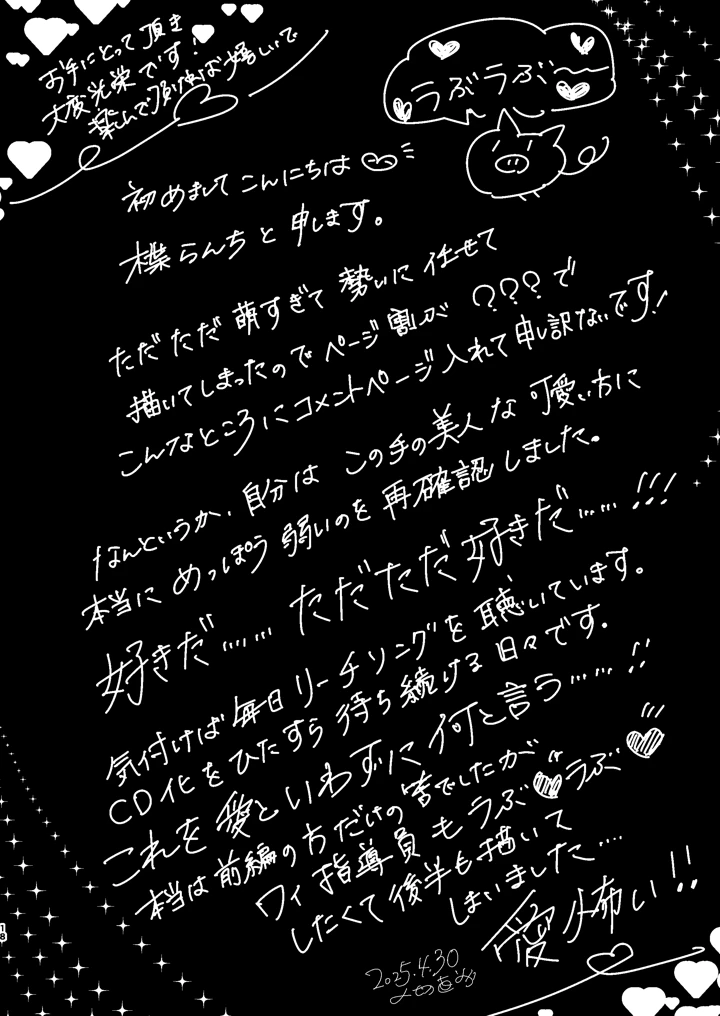 お手にとって頂き
大変光栄です！
楽しんで頂ければ嬉しいで
うぶうぶ〜
初めましてこんにちは
楪らんちと申します。
ただただ萌すぎて勢いに任せて
描いてしまったのでページ割が???で
こんなところにコメントページ入れて申し訳ないです!
なんというか、自分はこの手の美人な可愛い方に
本当にめっぽう弱いのを再確認しました。
好きだ……ただただ好きだ……!!!
気付けば毎日リーチソングを聴いています。
CD化をひたすら待ち続ける日々です。
これを愛といわずに何と言う……!!
本当は前編の方だけの筈でしたが
ワイ指導員もうぶうぶ
したくて後半も描いて
しまいました……
愛怖い!!
2025.4.30
18